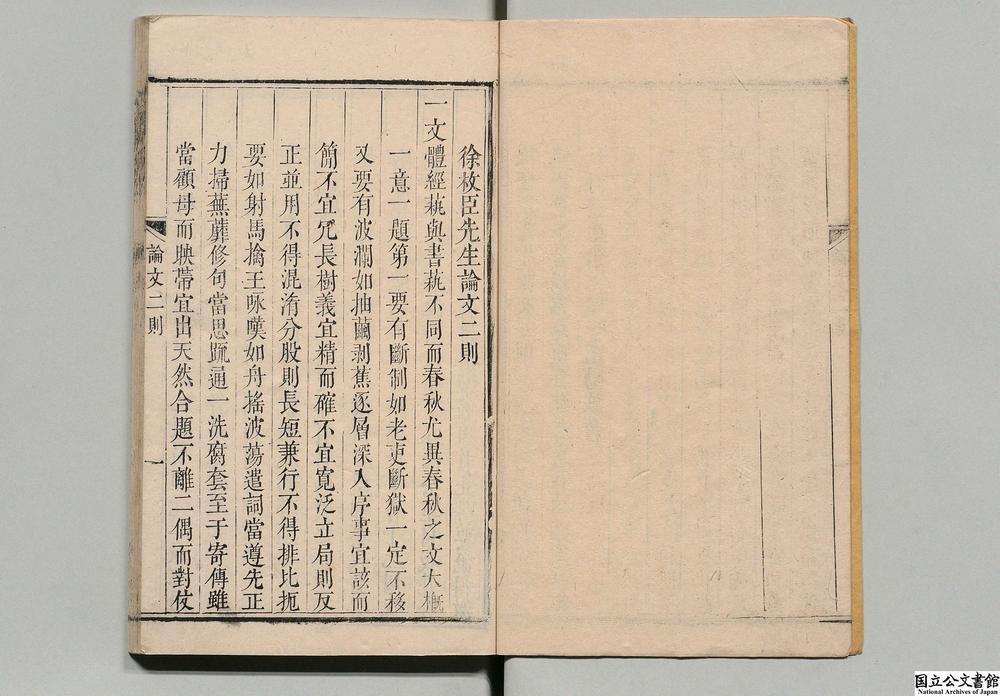 徐枚臣先生論文二則
一文體經蓺與書蓺不同而春秋尤異春秋之文大槪
一意一題第一要有斷制如老吏斷獄一定不移
又要有波瀾如抽繭剥蕉逐層深入序事宜該而
簡不宜冗長樹義宜精而確不宜寬泛立局則反
正並用不得混淆分股則長短兼行不得排比扼
要如射馬擒王咏嘆如舟搖波蕩遣詞當遵先正
力掃蕪蘼修句當思疏通一洗腐套至于寄傳雖
當顧母而映帶宜出天然合題不離二偶而對仗
論文二則
一
国立公文書館
National Archives of Japan